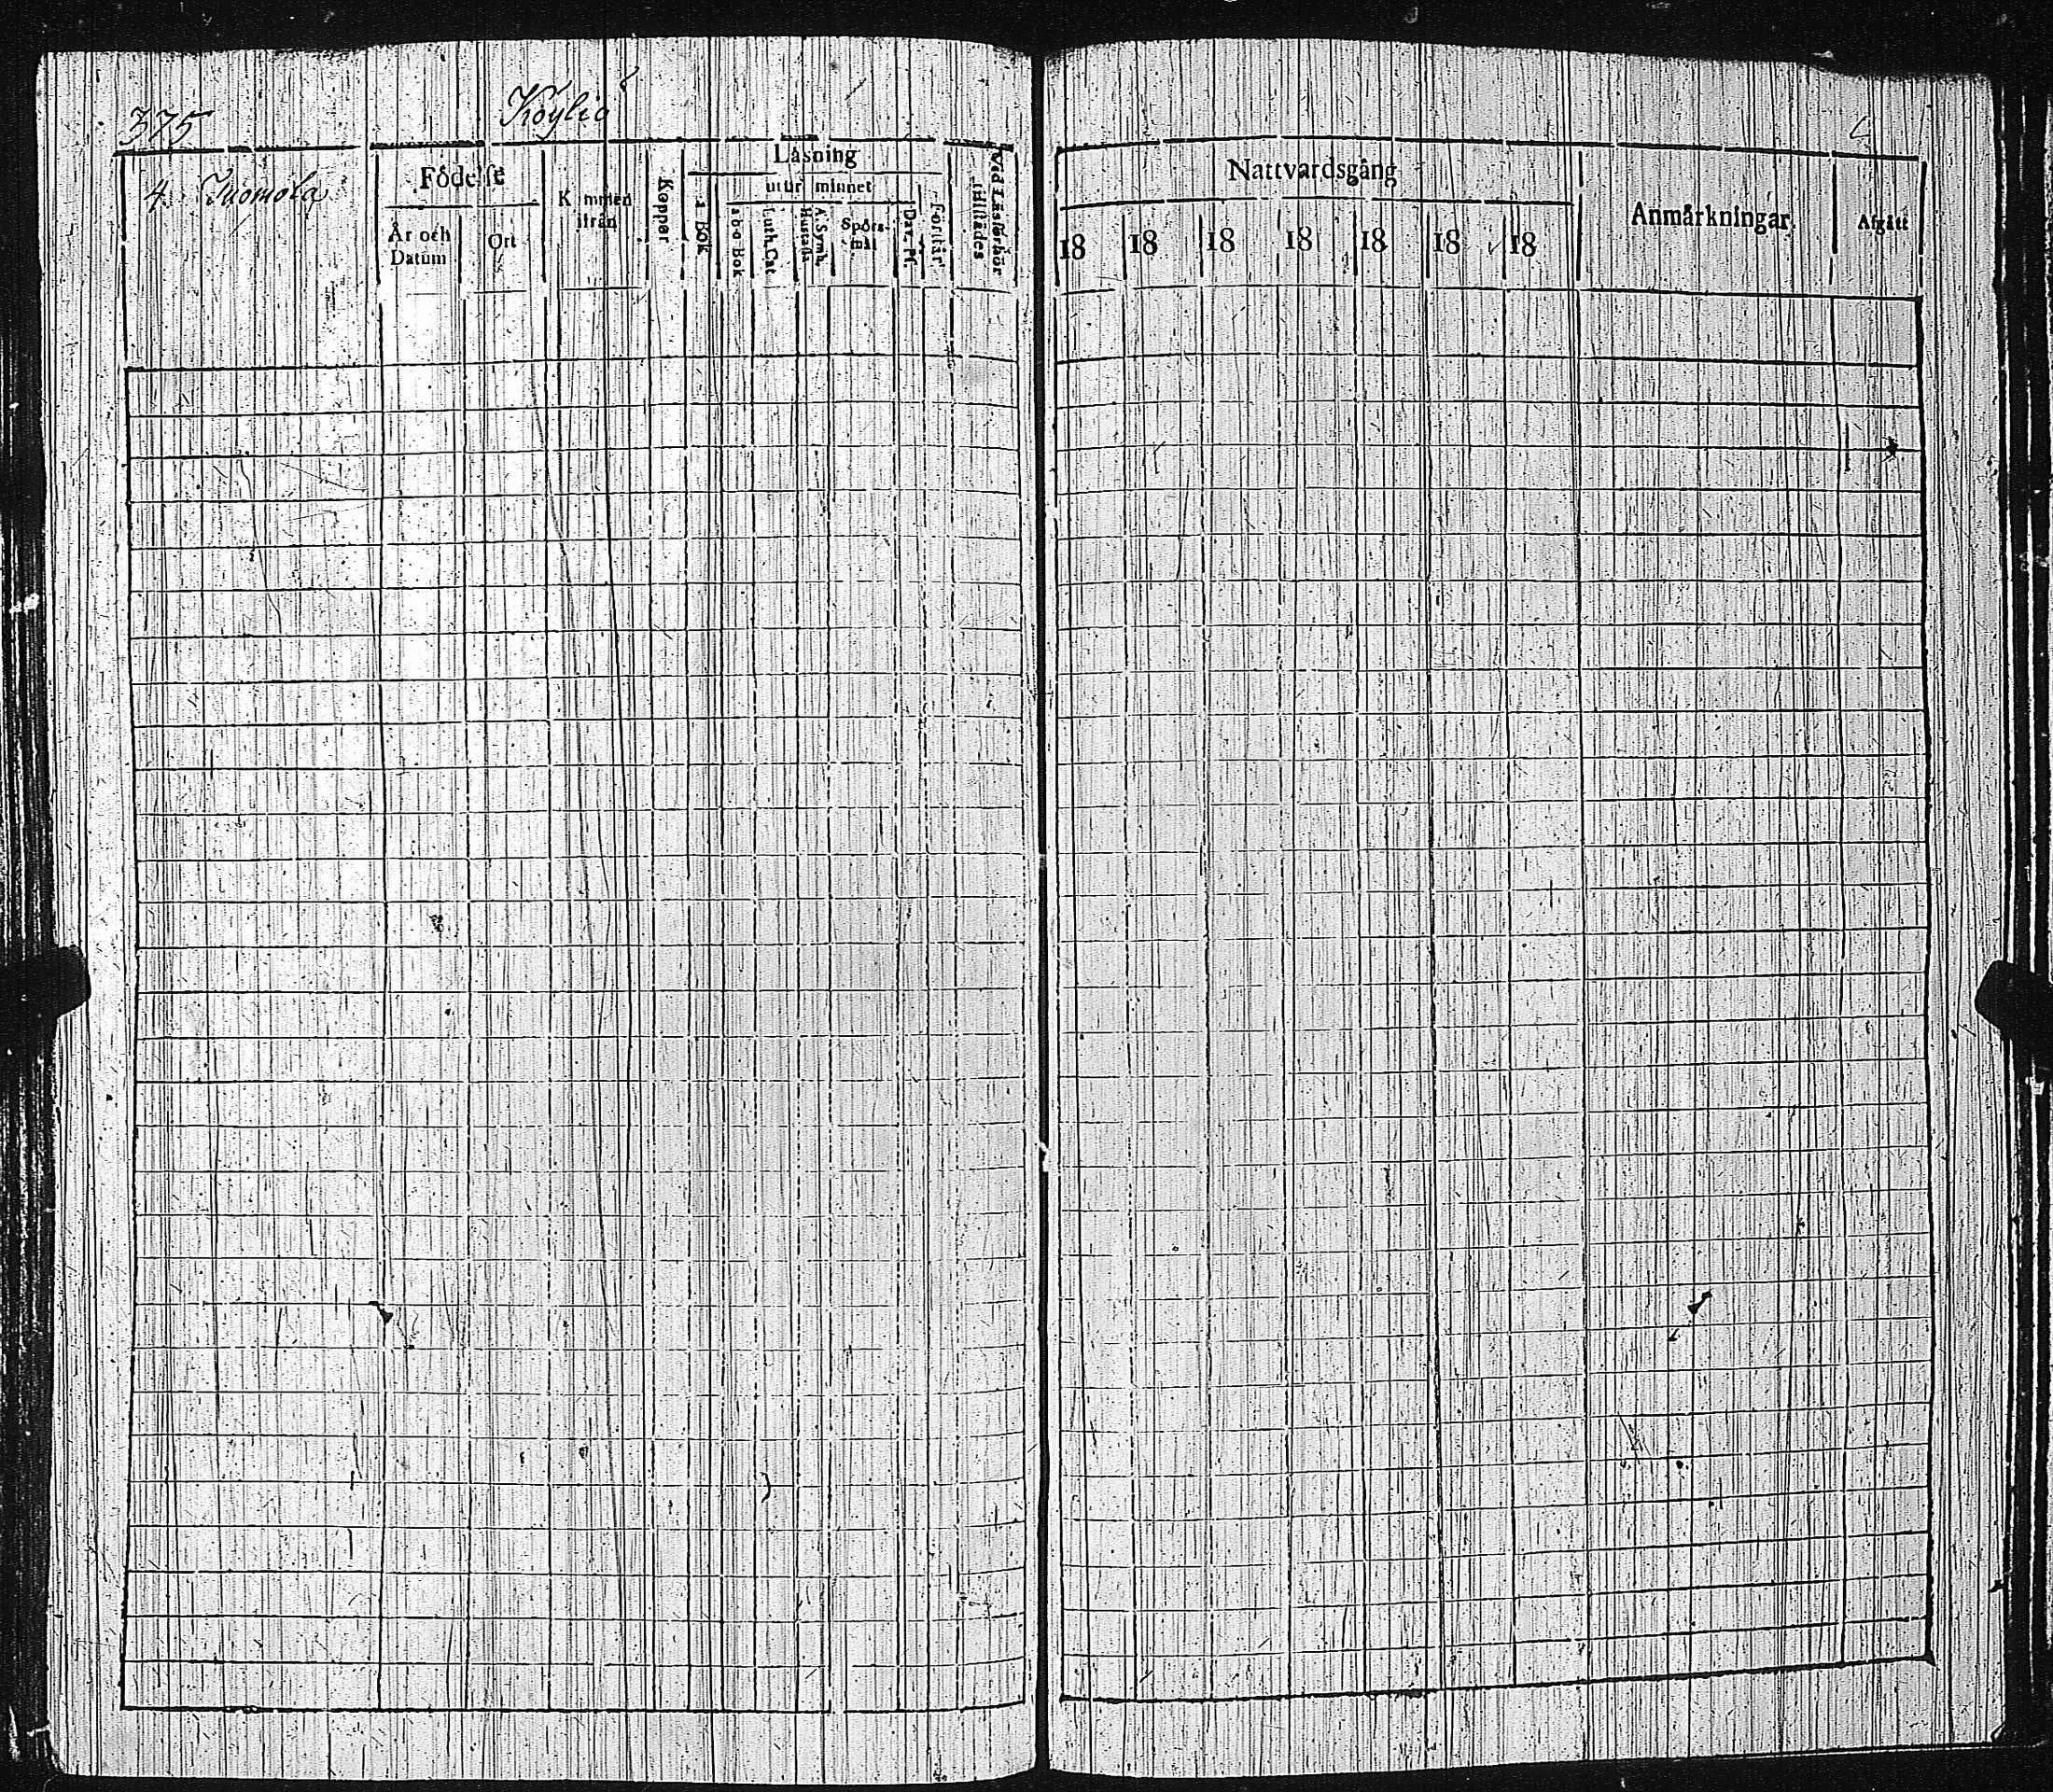 375 Köyliö
4. Tuomola
Födelse
År och Datum
Ort
Kommen ifrån
Koppor
Läsning
i Bok
utur minnet
a b c Bok
Luth. Cat.
A. Symb. Hustafla
Spörsmål
Dav. Ps.
Förstår
Vid Läsförhör tillstädes
Nattvardsgång
18 18 18 18 18 18 18
Anmärkningar
Afgått